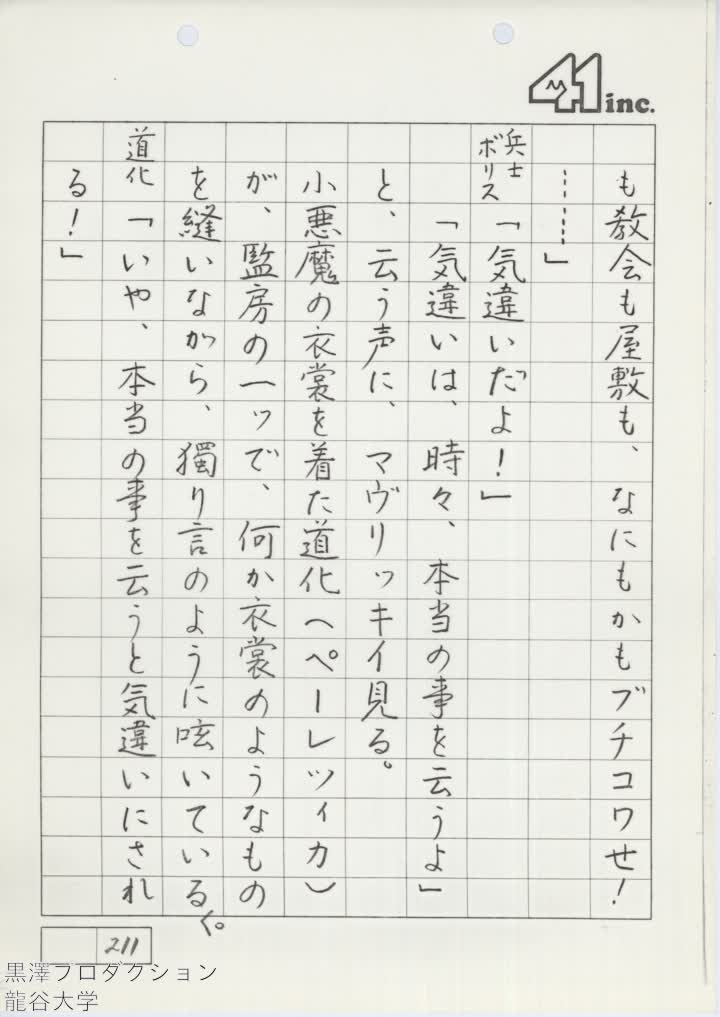 41 inc.
も教会も屋敷も、なにもかもブチコワせ!
……」
兵士ボリス「気違いだよ!」
「気違いは、時々、本当の事を云うよ」
と、云う声に、マヴリッキイ見る。
小悪魔の衣裳を着た道化(ペーレツィカ)
が、監房の一ッで、何か衣裳のようなもの
を縫いながら、獨り言のように呟いている。
道化「いや、本当の事を云うと気違いにされ
る!」
211
黒澤プロダクション
龍谷大学